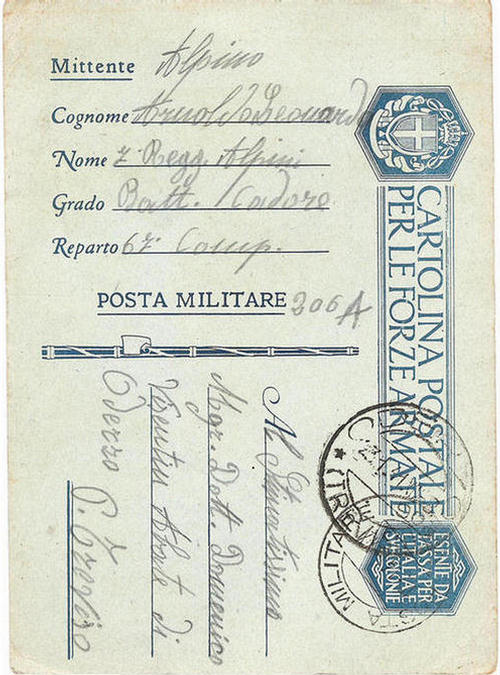 Mittente Alpino
Cognome Arnoldo Leonardo
Nome 7 Regg. Alpini
Grado Batt. Cadore
Reparto 67 Comp.
POSTA MILITARE 206 A
CARTOLINA POSTALE
PER LE FORZE ARMATE
ESENTE DA
TASSA PER
L'ITALIA E
SUE COLONIE
Al
Mgr. Dott. Domenico
Visentin Abate di
Oderzo
P. Treviso
(TREVISO)
POSTA MILITA